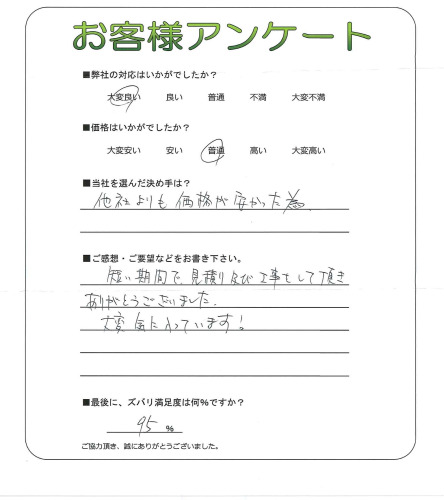 お客様アンケート
■弊社の対応はいかがでしたか？
大変良い 良い 普通 不満 大変不満
■価格はいかがでしたか？
大変安い 安い 普通 高い 大変高い
■当社を選んだ決め手は？
他社よりも価格が安かった為
■ご感想・ご要望などをお書き下さい。
短い期間で、見積り及び工事をして頂き
ありがとうございました。
大変気に入っています！
■最後に、ズバリ満足度は何%ですか？
95 %
ご協力頂き、誠にありがとうございました。